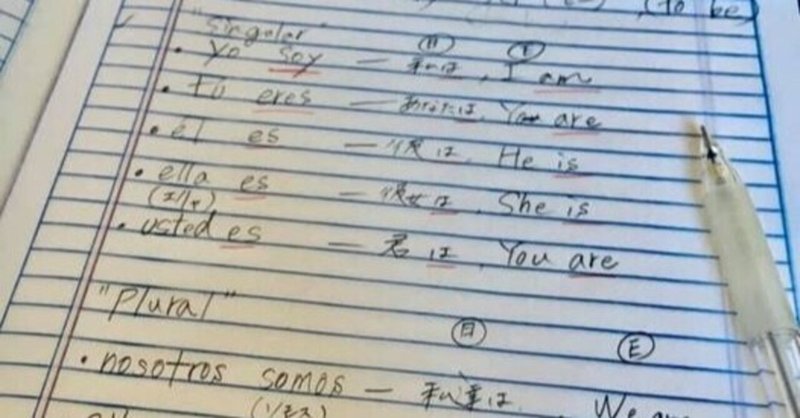 (to be)
"Singular"
日 E
• yo soy — 私は, I am
• tú eres — あなたは, You are
• él es — 彼は, He is
• ella es — 彼女は, She is
(エリャ)
• usted es — 君は, You are
"Plural"
日 E
• nosotros somos — 私達は We